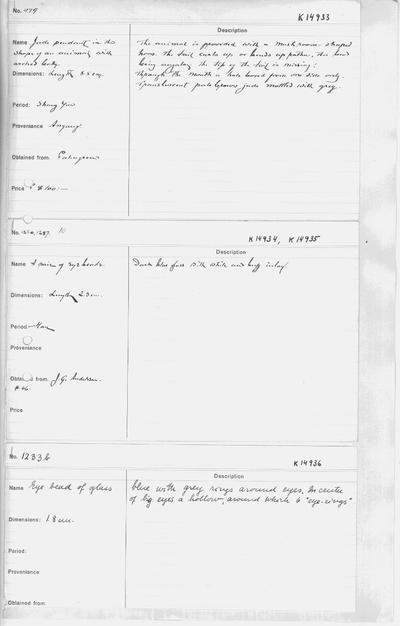 No. 479
K 14933
Description
Name Jade pendant in the
shape of an animal with
arched body.
Dimensions: Length 5.5 cm.
Period: Shang Yin
Provenance Anyang
Obtained from.
Price
The animal is provided with a mushroom shaped
horn. The tail curls up
the tip of the tail is missing:
through the mouth a hole bored from one side only.
Translucent pale brown jade mottled with grey.
No.
K 14934, K 14935
Description
Name A pair of eye beads.
Dimensions: Length 2.3 cm.
Period: Han
Provenance
Obtained from. J. G. Andersson.
Price
Dark blue glass with white and buff inlay
No. 1233 b
K 14936
Description
Name Eye bead of glass
Dimensions: 1.8 cm.
Period:
Provenance
Obtained from.
blue with grey rings around eyes. In centre
of big eyes a hollow, around which 6 "eye-rings"